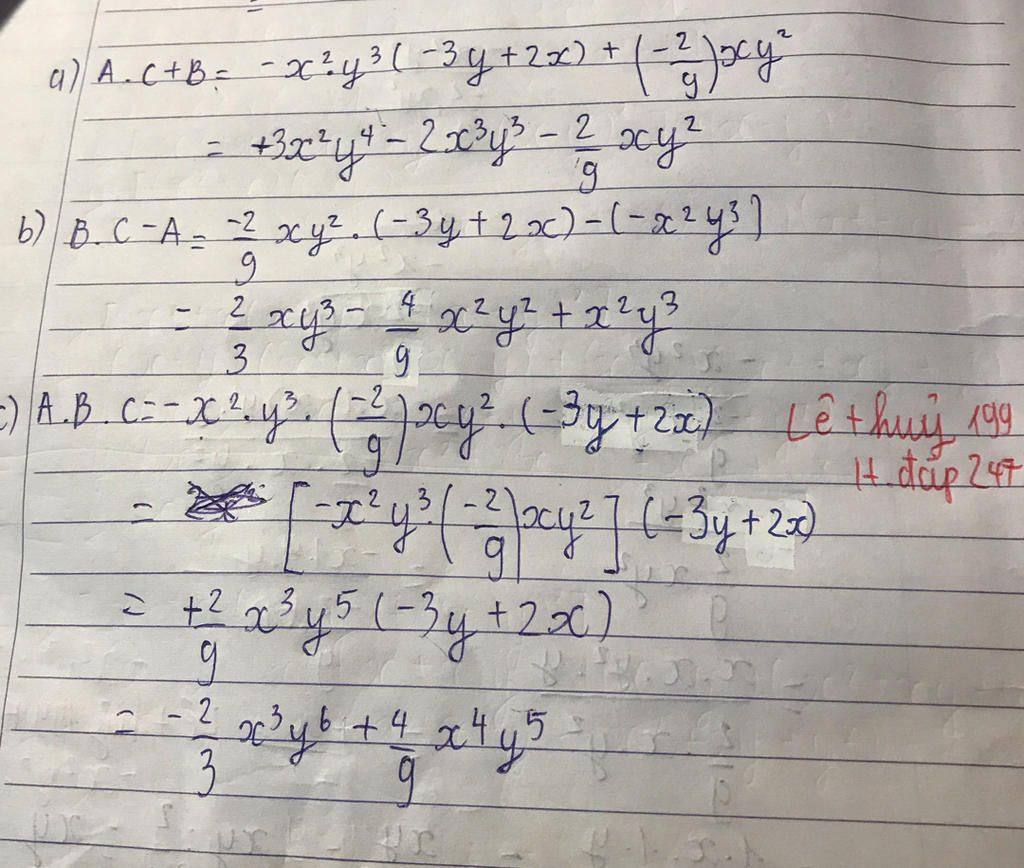 a) A.C+B= -x².y³(-3y+2x)+(-2/9)xy²
= +3x²y⁴-2x³y³-2/9 xy²
b) B.C-A= -2/9 xy².(-3y+2x)-(-x²y³)
= 2/3 xy³-4/9 x²y²+x²y³
c) A.B.C=-x².y³.(-2/9)xy².(-3y+2x)
Lê thuỷ 199
H.đáp 247
= [-x²y³.(-2/9)xy²](-3y+2x)
= +2/9 x³y⁵(-3y+2x)
= -2/3 x³y⁶+4/9 x⁴y⁵